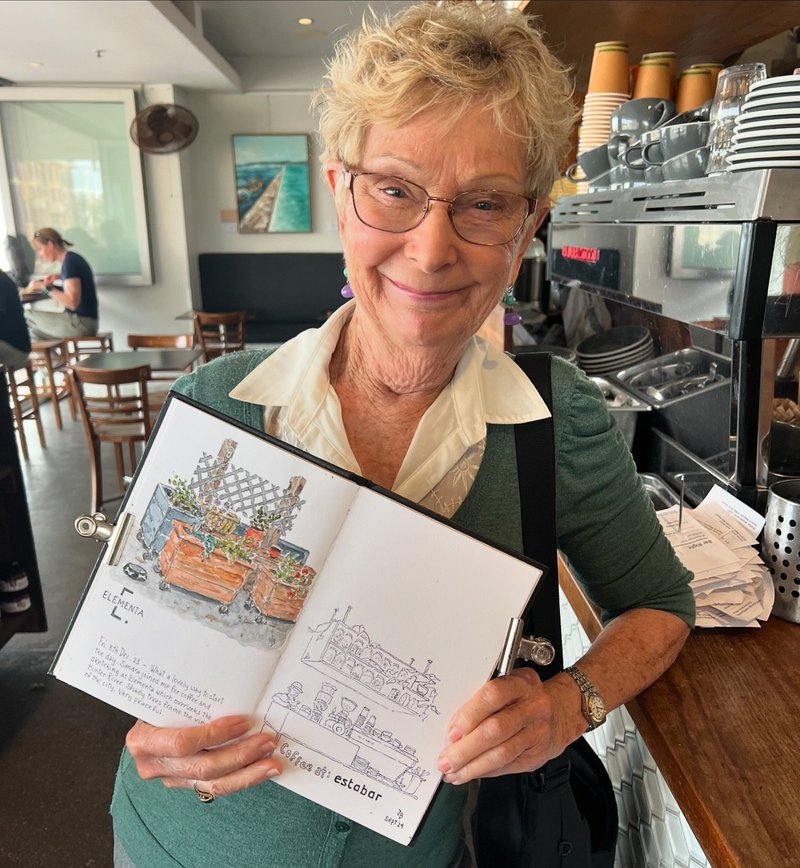 ELEMENTA
Fri. 8th Dec. 23 - What a lovely way to start
the day. Sandra joined me for coffee and
sketching at Elementa which overlooks the
Hunter River. Shady trees frame the view
of the city. Very peaceful.
Coffee at: estabar
Sept 24